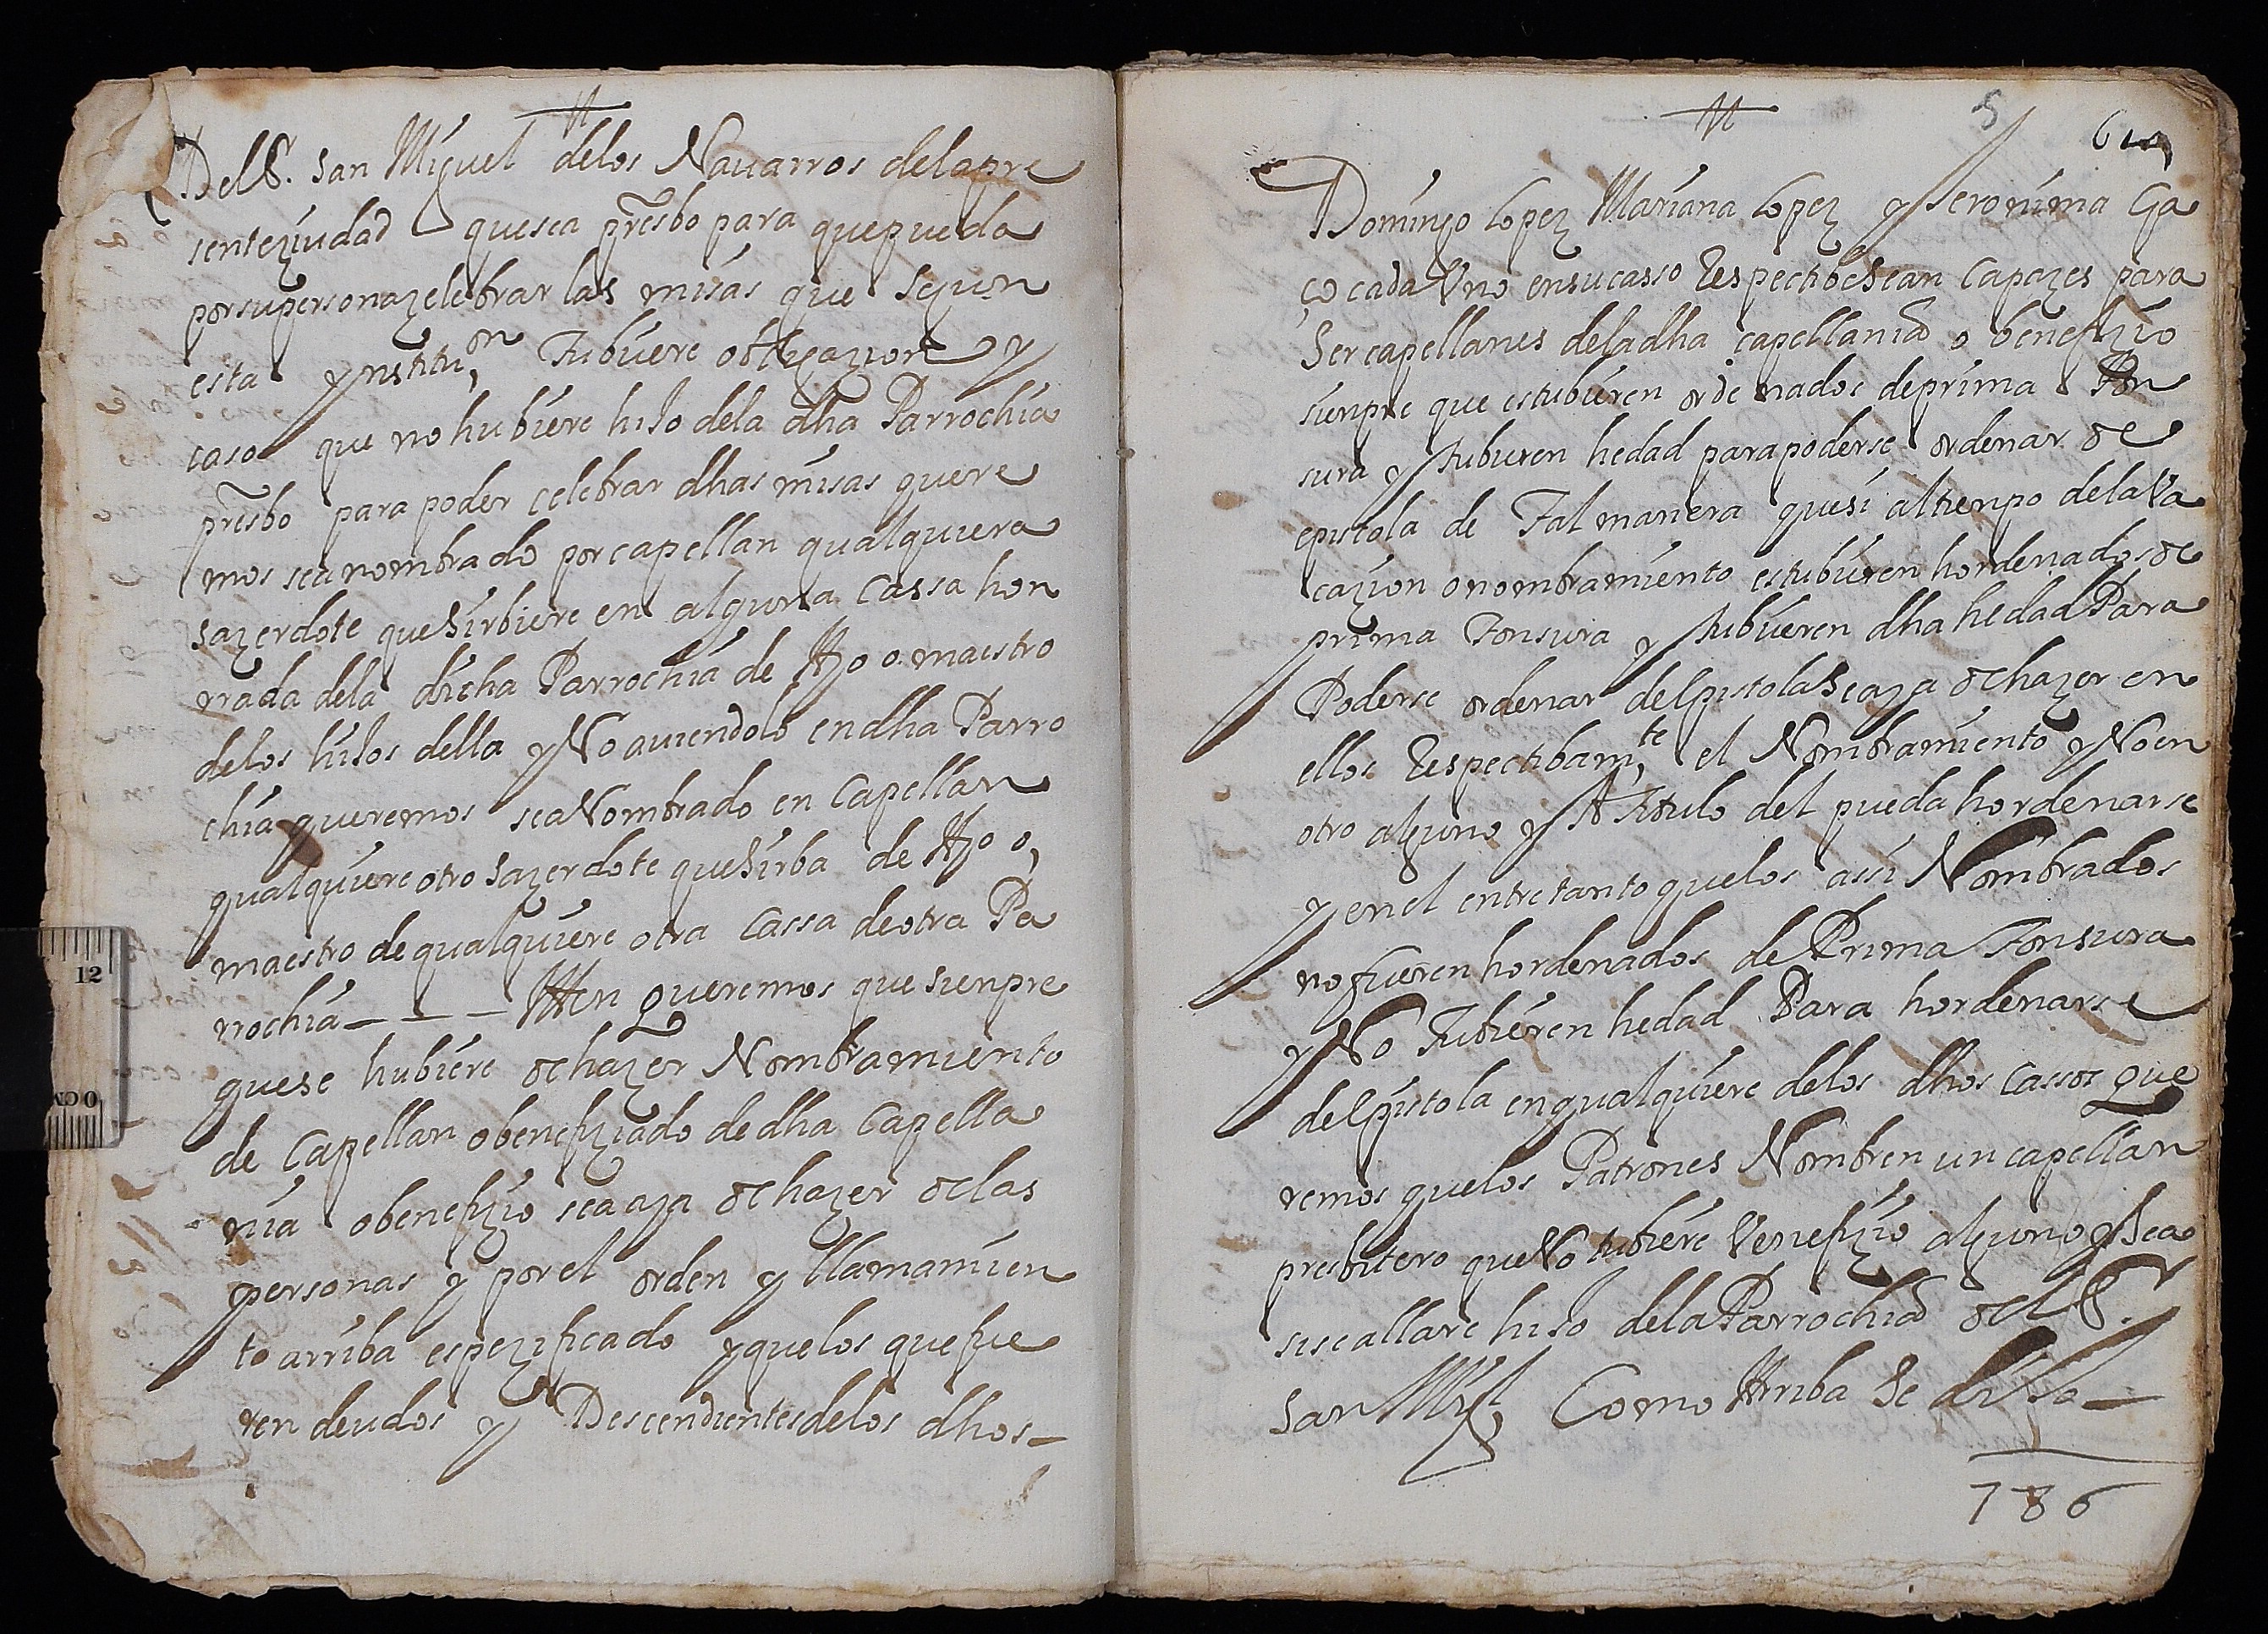 Del S. San Miguel delos Nauarros delapre
senteziudad quesea presbo para quepueda
porsupersonazelebrar las misas que segun
esta ynstituon, tubiere obligazion y
caso que no hubiere hijo dela dha Parrochia
presbo para poder celebrar dhas misas quere
mos sea nombrado por capellan qualquiera
sazerdote que sirbiere en alguna cassa hon
rrada dela dicha Parrochia de Ayo o maestro
delos hijos della y No auiendolo en dha Parro
chia queremos sea Nombrado en Capellan
qualquiere otro sazerdote que sirba de Ayo o,
maestro de qualquiere otra cassa de otra Pa
rrochia — — — Itten Queremos que sienpre
quese hubiere de hazer Nombramiento
de Capellan o benefiziado de dha Capella
nia o benefizio sea aya de hazer de las
personas y por el orden y llamamien
to arriba espezificado y quelos que fue
ren deudos y Descendientes delos dhos —
5
61
Domingo Lopez Mariana Lopez y Jeronima Ga
ço cada Uno ensucasso Respectibe sean Capazes para
Ser capellanes dela dha capellania o benefizio
sienpre que estubieren ordenados de prima Ton
sura y tubieren hedad para poderse ordenar de
epistola de Tal manera quesi altienpo dela Va
cazion o nombramiento estubieren hordenados de
prima Tonsura y tubieren dha hedad Para
Poderse ordenar delpistola Seaya de hazer en
ellos Respectibamte, el Nombramiento y No en
otro alguno y A Titulo del pueda hordenarse
y en el entre tanto quelos assi Nombrados
no fueren hordenados de Prima Tonsura
y No Tubieren hedad Para hordenarse
delpistola en qualquiere delos dhos cassos Que
remos quelos Patrones Nombren un capellan
presbitero que No tubiere Venefizio alguno y Sea
sise allare hijo dela Parrochia del Sr
San Migl, Como Arriba Se dijo —
786